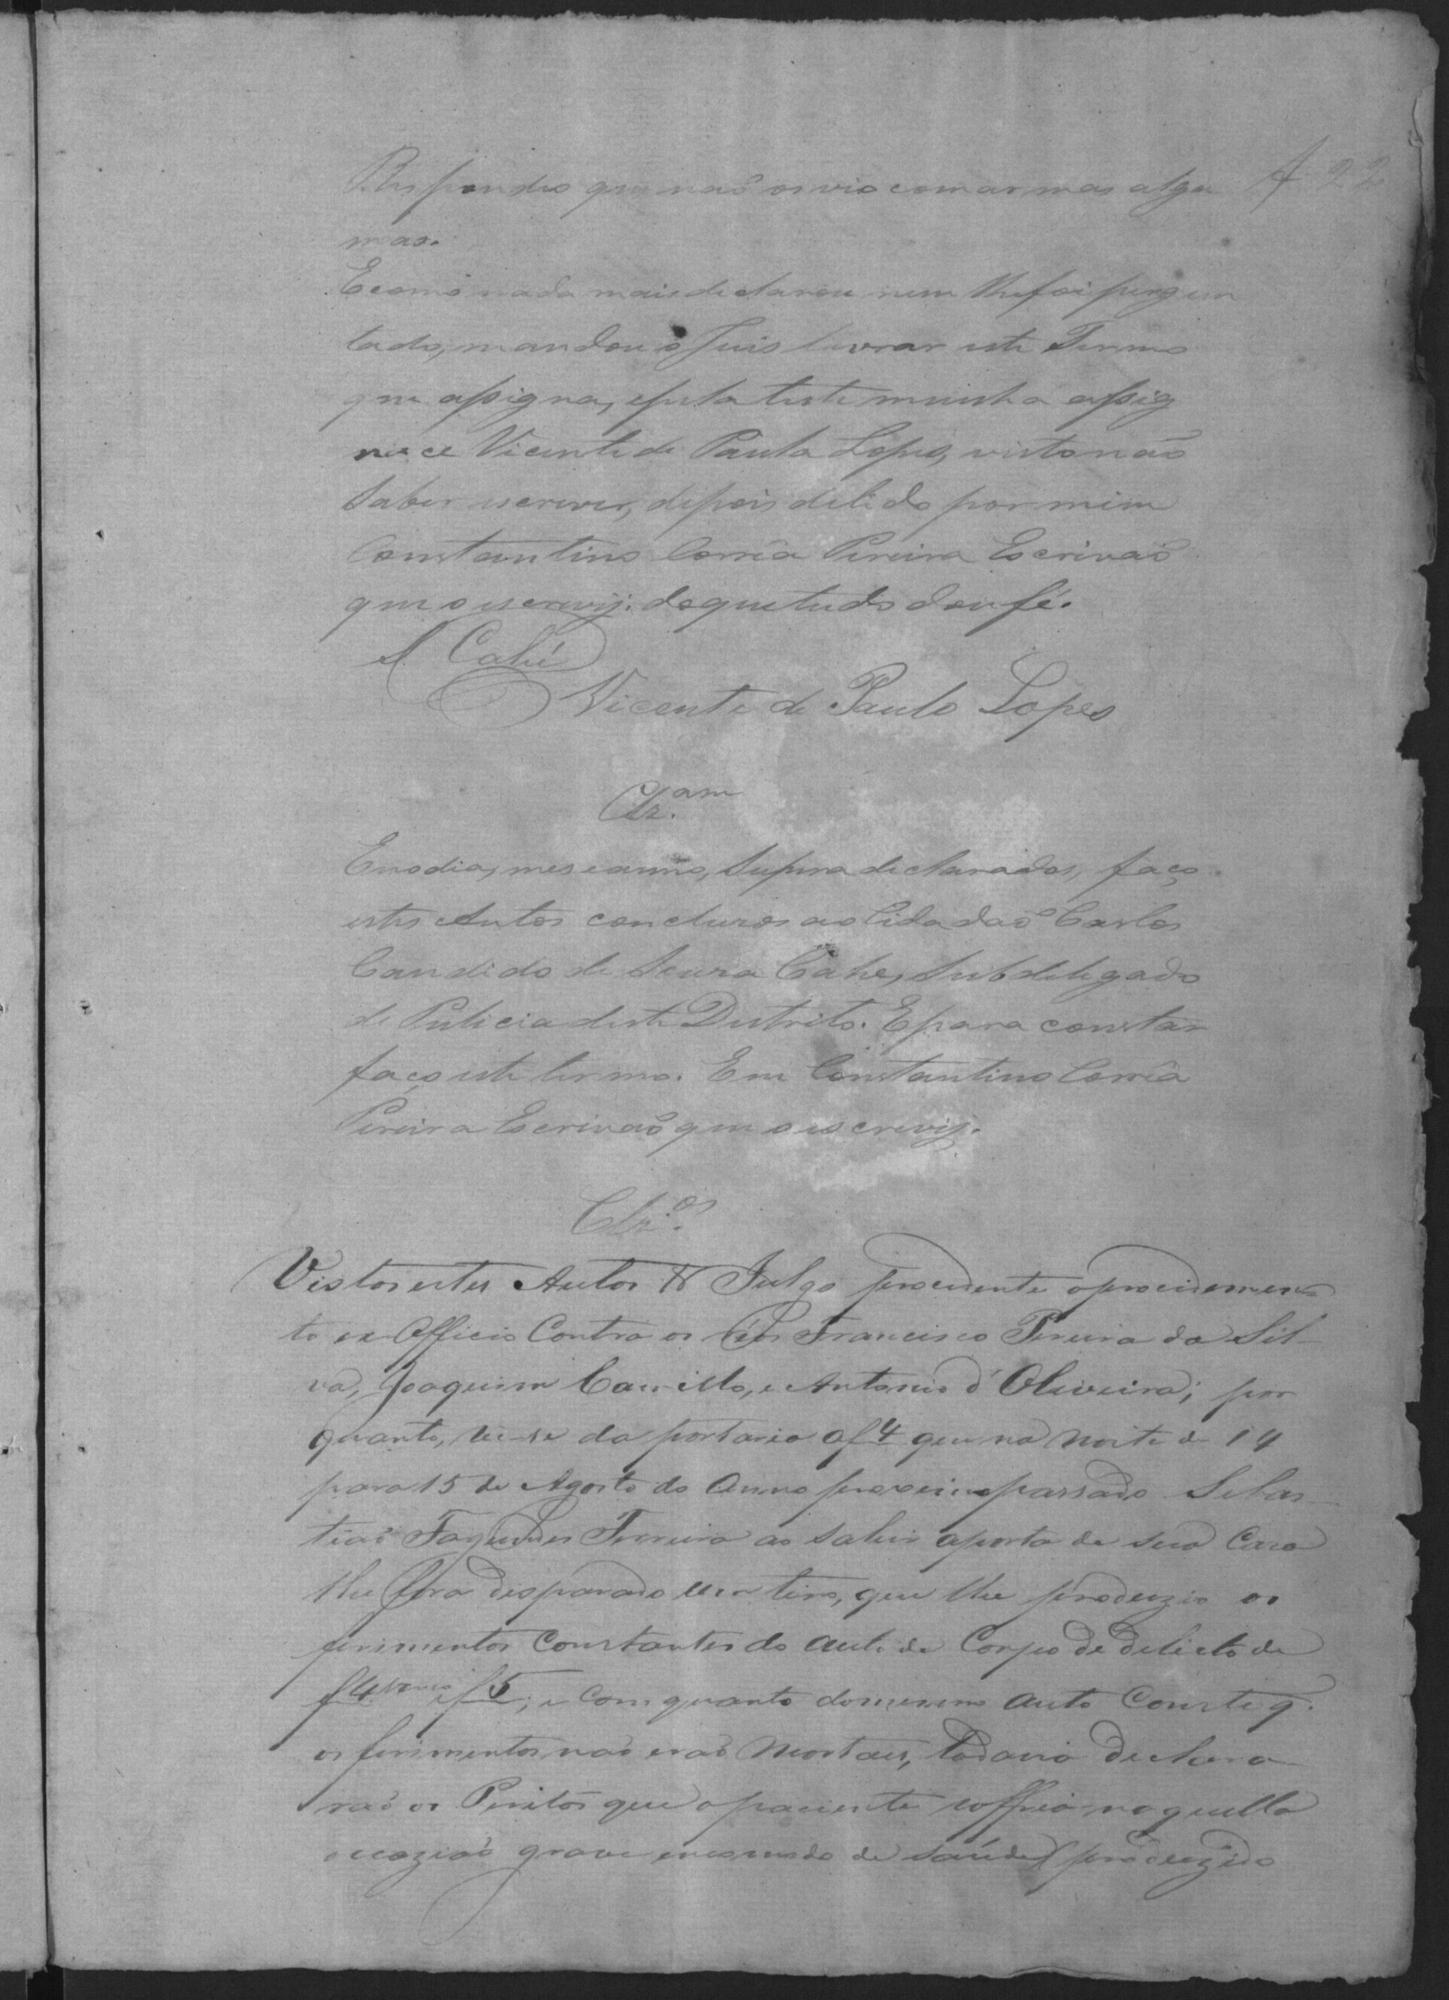 f 22
Respondeo que naõ os vio com armas algu
mas.
E como nada mais declarou nem lhe foi pergun
tado, mandou o Juis lavrar este Termo
que assigna, e pela testemunha assig
na ce Vicente de Paula Lopes, visto não
saber escrever, depois de lido por mim
Constantino Corrêa Pereira Escrivaõ
que o escrevij. do que tudo dou fé.
S. Cahé
Vicente de Paulo Lopes
Clz.am
E no dia, mes e anno, supra declarados, faço
estes Autos concluzos ao Cidadaõ Carlos
Candido de Souza Cahe, Subdelegado
de Policia deste Distrito. E para constar
faço este termo. Eu Constantino Corrêa
Pereira Escrivaõ que o escrevij.
Clz.os
Vistos estes Autos & Julgo procedente o procedimen
to ex Officio Contra os Réos Francisco Pereira da Sil-
va, Joaquim Carrillo, e Antonio d'Oliveira; por
quanto, ve-se da portaria a f 4 que na noite de 14
para 15 de Agosto do Anno proximo passado Sebas-
tiaõ Fagundes Ferreira ao sahir a porta de sua Casa
lhe fora disparado um tiro, que lhe produzio os
ferimentos Constantes do auto de Corpo de delicto de
f 4 verso e f 5; e com quanto do mesmo auto Conste q.
os ferimentos naõ eraõ mortaes, todavia declara
raõ os Peritos que o paciente soffreo naquella
occaziaõ grave encomodo de saúde produzido